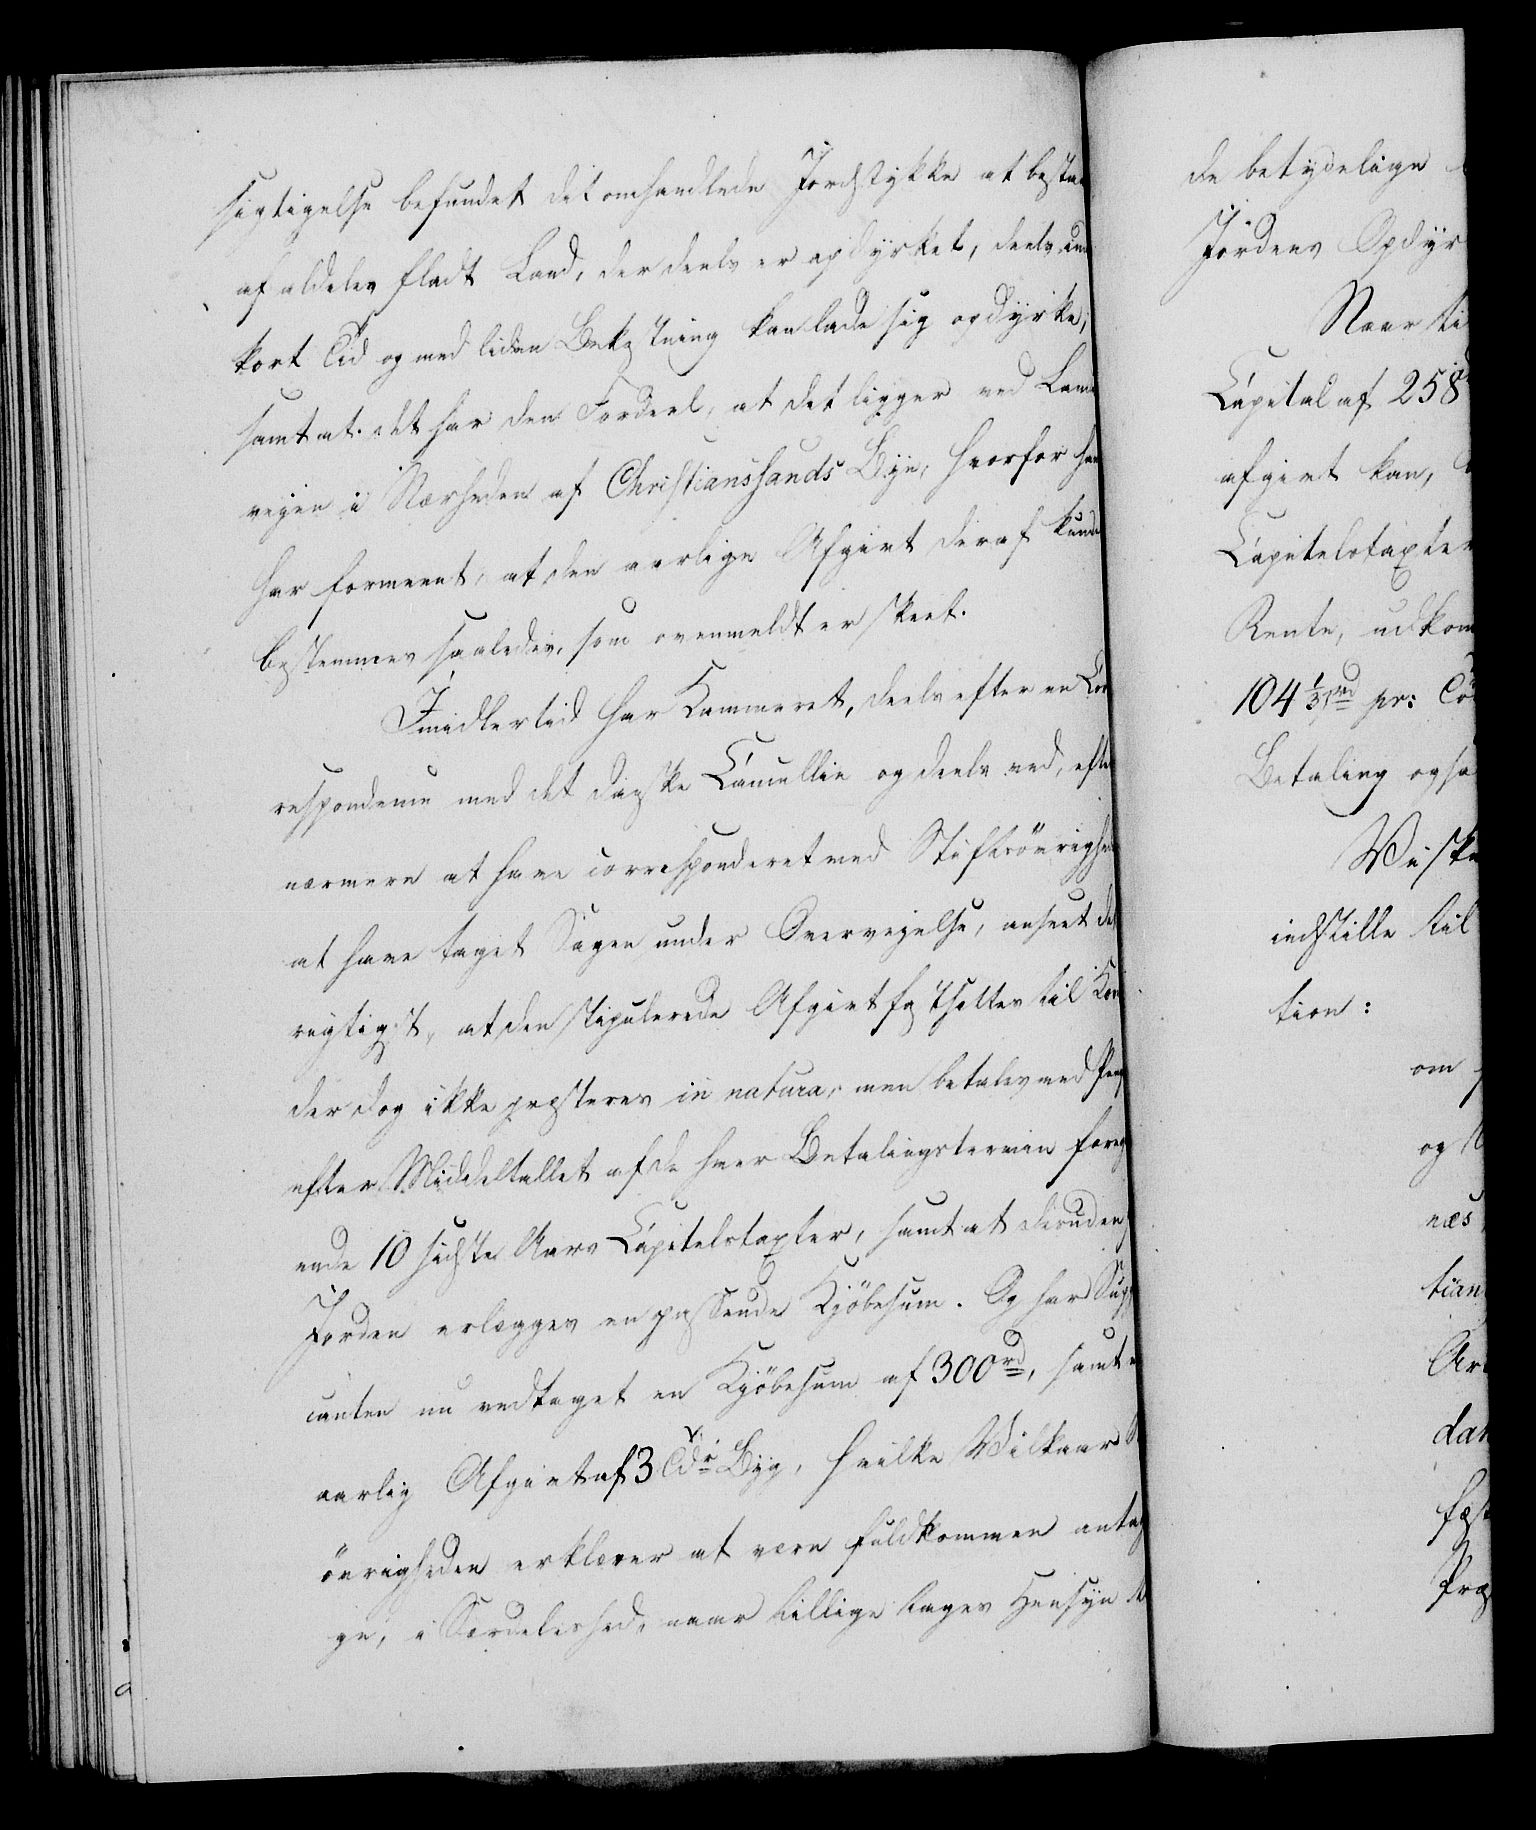 sigtigelse befundet det omhandlede Jordstykke at bestaa
af aldeles fladt Land, der deels er opdyrket, deels
kort Tid og med liden Bekostning kan lade sig opdyrke,
samt at det har den Fordeel, at det ligger ved Lande
vejen i Nærheden af Christianssands Bye, hvorfor han
har formeent, at den aarlige Afgivt deraf kunde
bestemmes saaledes, som ovenmeldt er skeet.
Imidlertid har Kammeret, deels efter en Cor
respondence med det danske Cancellie og deels ved, efter
nærmere at have corresponderet med Stiftsövrighe
at have taget Sagen under Overvejelse, anseet det
rigtigst, at den stipulerede Afgivt fastsættes til Korn
der dog ikke præsteres in natura, men betales med Peng
efter Middeltallet af de hver Betalingstermin foreg
ende 10 sidste Aars Capitelstaxter, samt at deruden
Jorden erlægges en passende Kjöbesum. Og har Supp
canten nu vedtaget en Kjöbesum af 300rd, samt
aarlig Afgivt af 3 Tdr Byg, hvilke Vilkaar St
övrigheden erklærer at være fuldkommen antag
ge, i Særdeleshed, naar tillige tages Hensyn til
de betydelige
Jordens Opdyr
Naar ti
Capital af 258
afgivt kan,
Capitelstaxter
Rente, udkom
104 1/3 rd pr: Tö
Betaling ogsa
Vi ske
indstille til
tion:
om
og
næs
tian
Ar
dan
fæst
Præ